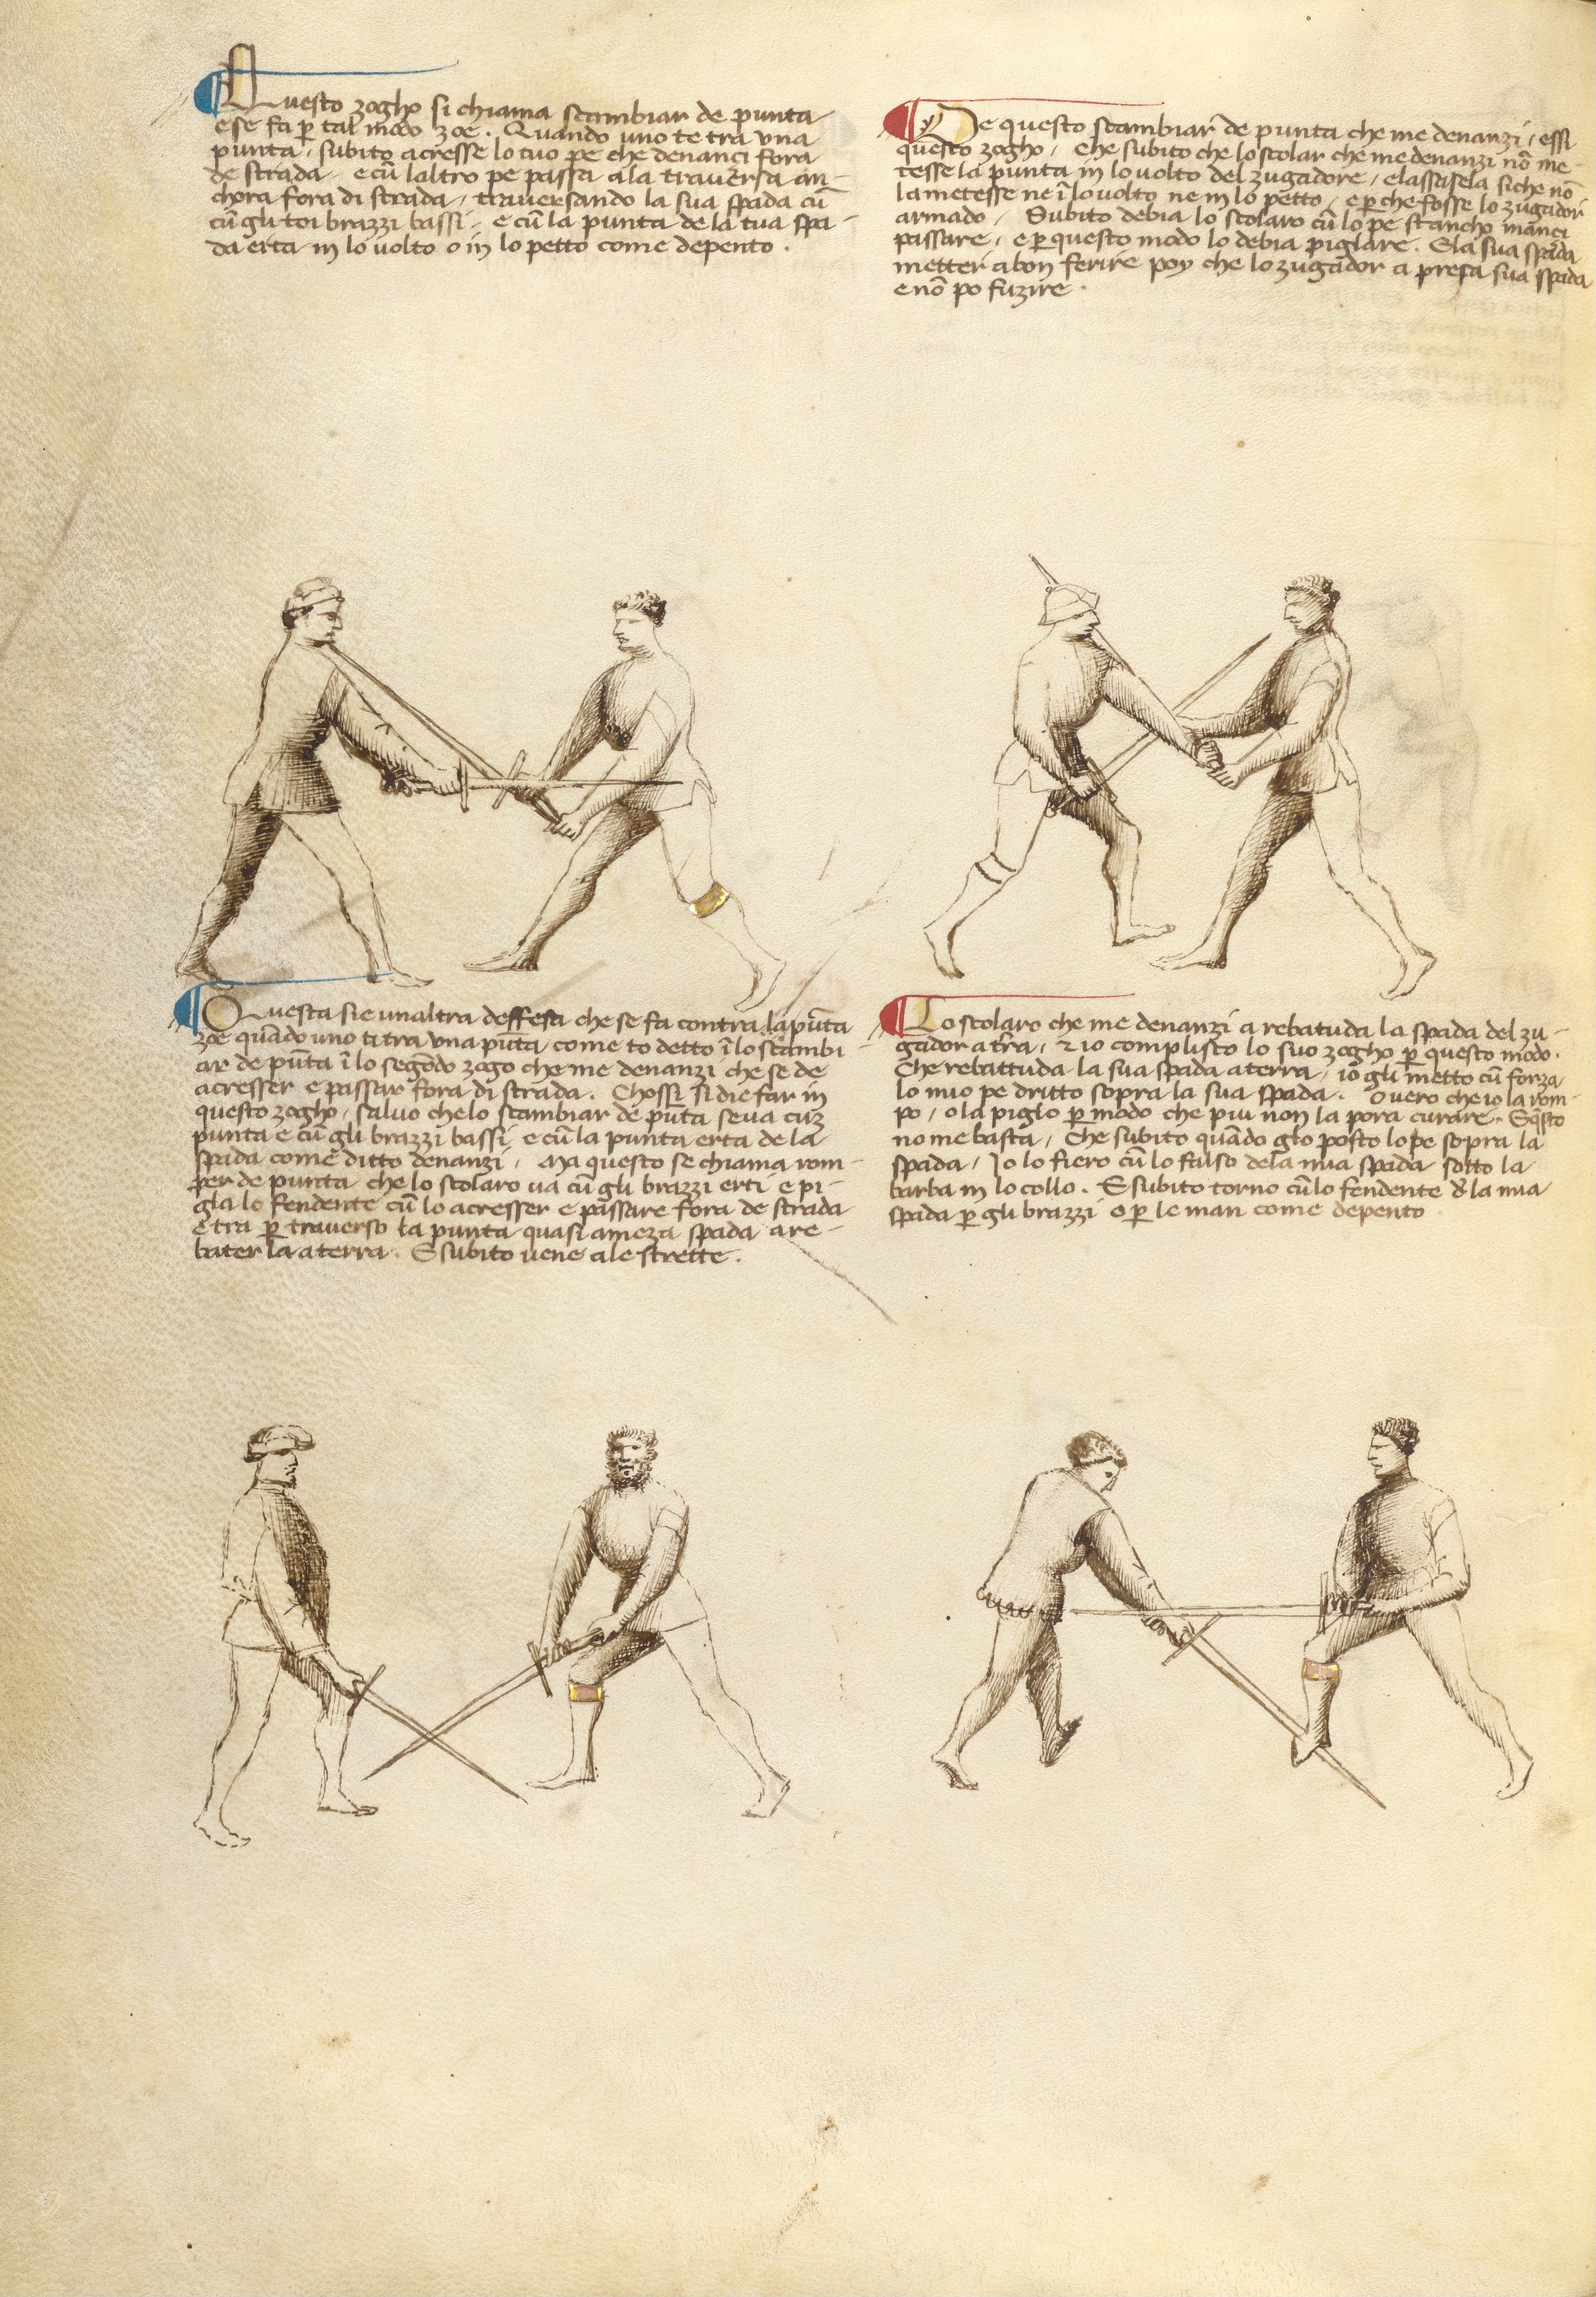 Questo zogho si chiama scambiar de punta
e se fa p tal modo zoe. Quando uno te tra una
punta, subito acresse lo tuo pe che denanci fora
de strada e cū laltro pe passa ala traversa an-
chora fora di strada, traversando la sua spada cū
cū gli toi brazzi bassi, e cū la punta de la tua spa-
da erta in lo volto o in lo petto come depento.
De questo scambiar de punta che me denanzi, essi
questo zogho, che subito che lo scolar che me denanzi nō me-
tesse la punta in lo volto del zugadore, e lassasela siche nō
la metesse ne ī lo volto ne in lo petto, e p che fosse lo zugador
armado, Subito debia lo scolaro cū lo pe stancho inanci
passare, e p questo modo lo debia piglare. E la sua spada
metter a bon ferire poy che lo zugador a presa sua spada
e nō po fuzire.
Questa sie unaltra deffesa che se fa contra la pūta
zoe quādo uno ti tra una pūta come to detto ī lo scambi-
ar de pūta ī lo segōdo zogo che me denanzi che se de
acresser e passar fora di strada. Chossi si die far in
questo zogho, salvo che lo scambiar de pūta se va cuz
punta e cū gli brazzi bassi e cū la punta erta de la
spada come ditto denanzi, Ma questo se chiama rom-
per de punta che lo scolaro va cū gli brazzi erti e pi-
gla lo fendente cū lo acresser e passare fora de strada
e tra p traverso la punta quasi a meza spada a re-
baterla a terra. E subito vene a le strette.
Lo scolaro che me denanzi a rebatuda la spada del zu-
gador a tra, et io complisco lo suo zogho p questo modo.
Che rebattuda la sua spada a terra, io gli metto cū forza
lo mio pe dritto sopra la sua spada. Overo che io la rom-
po, o la piglo p modo che piu non la pora curare. E q̄sto
no me basta, che subito quādo glo posto lo pe sopra la
spada, Io lo fiero cū lo falso de la mia spada sotto la
barba in lo collo. E subito torno cū lo fendente d̄ la mia
spada p gli brazzi o p le man come depento